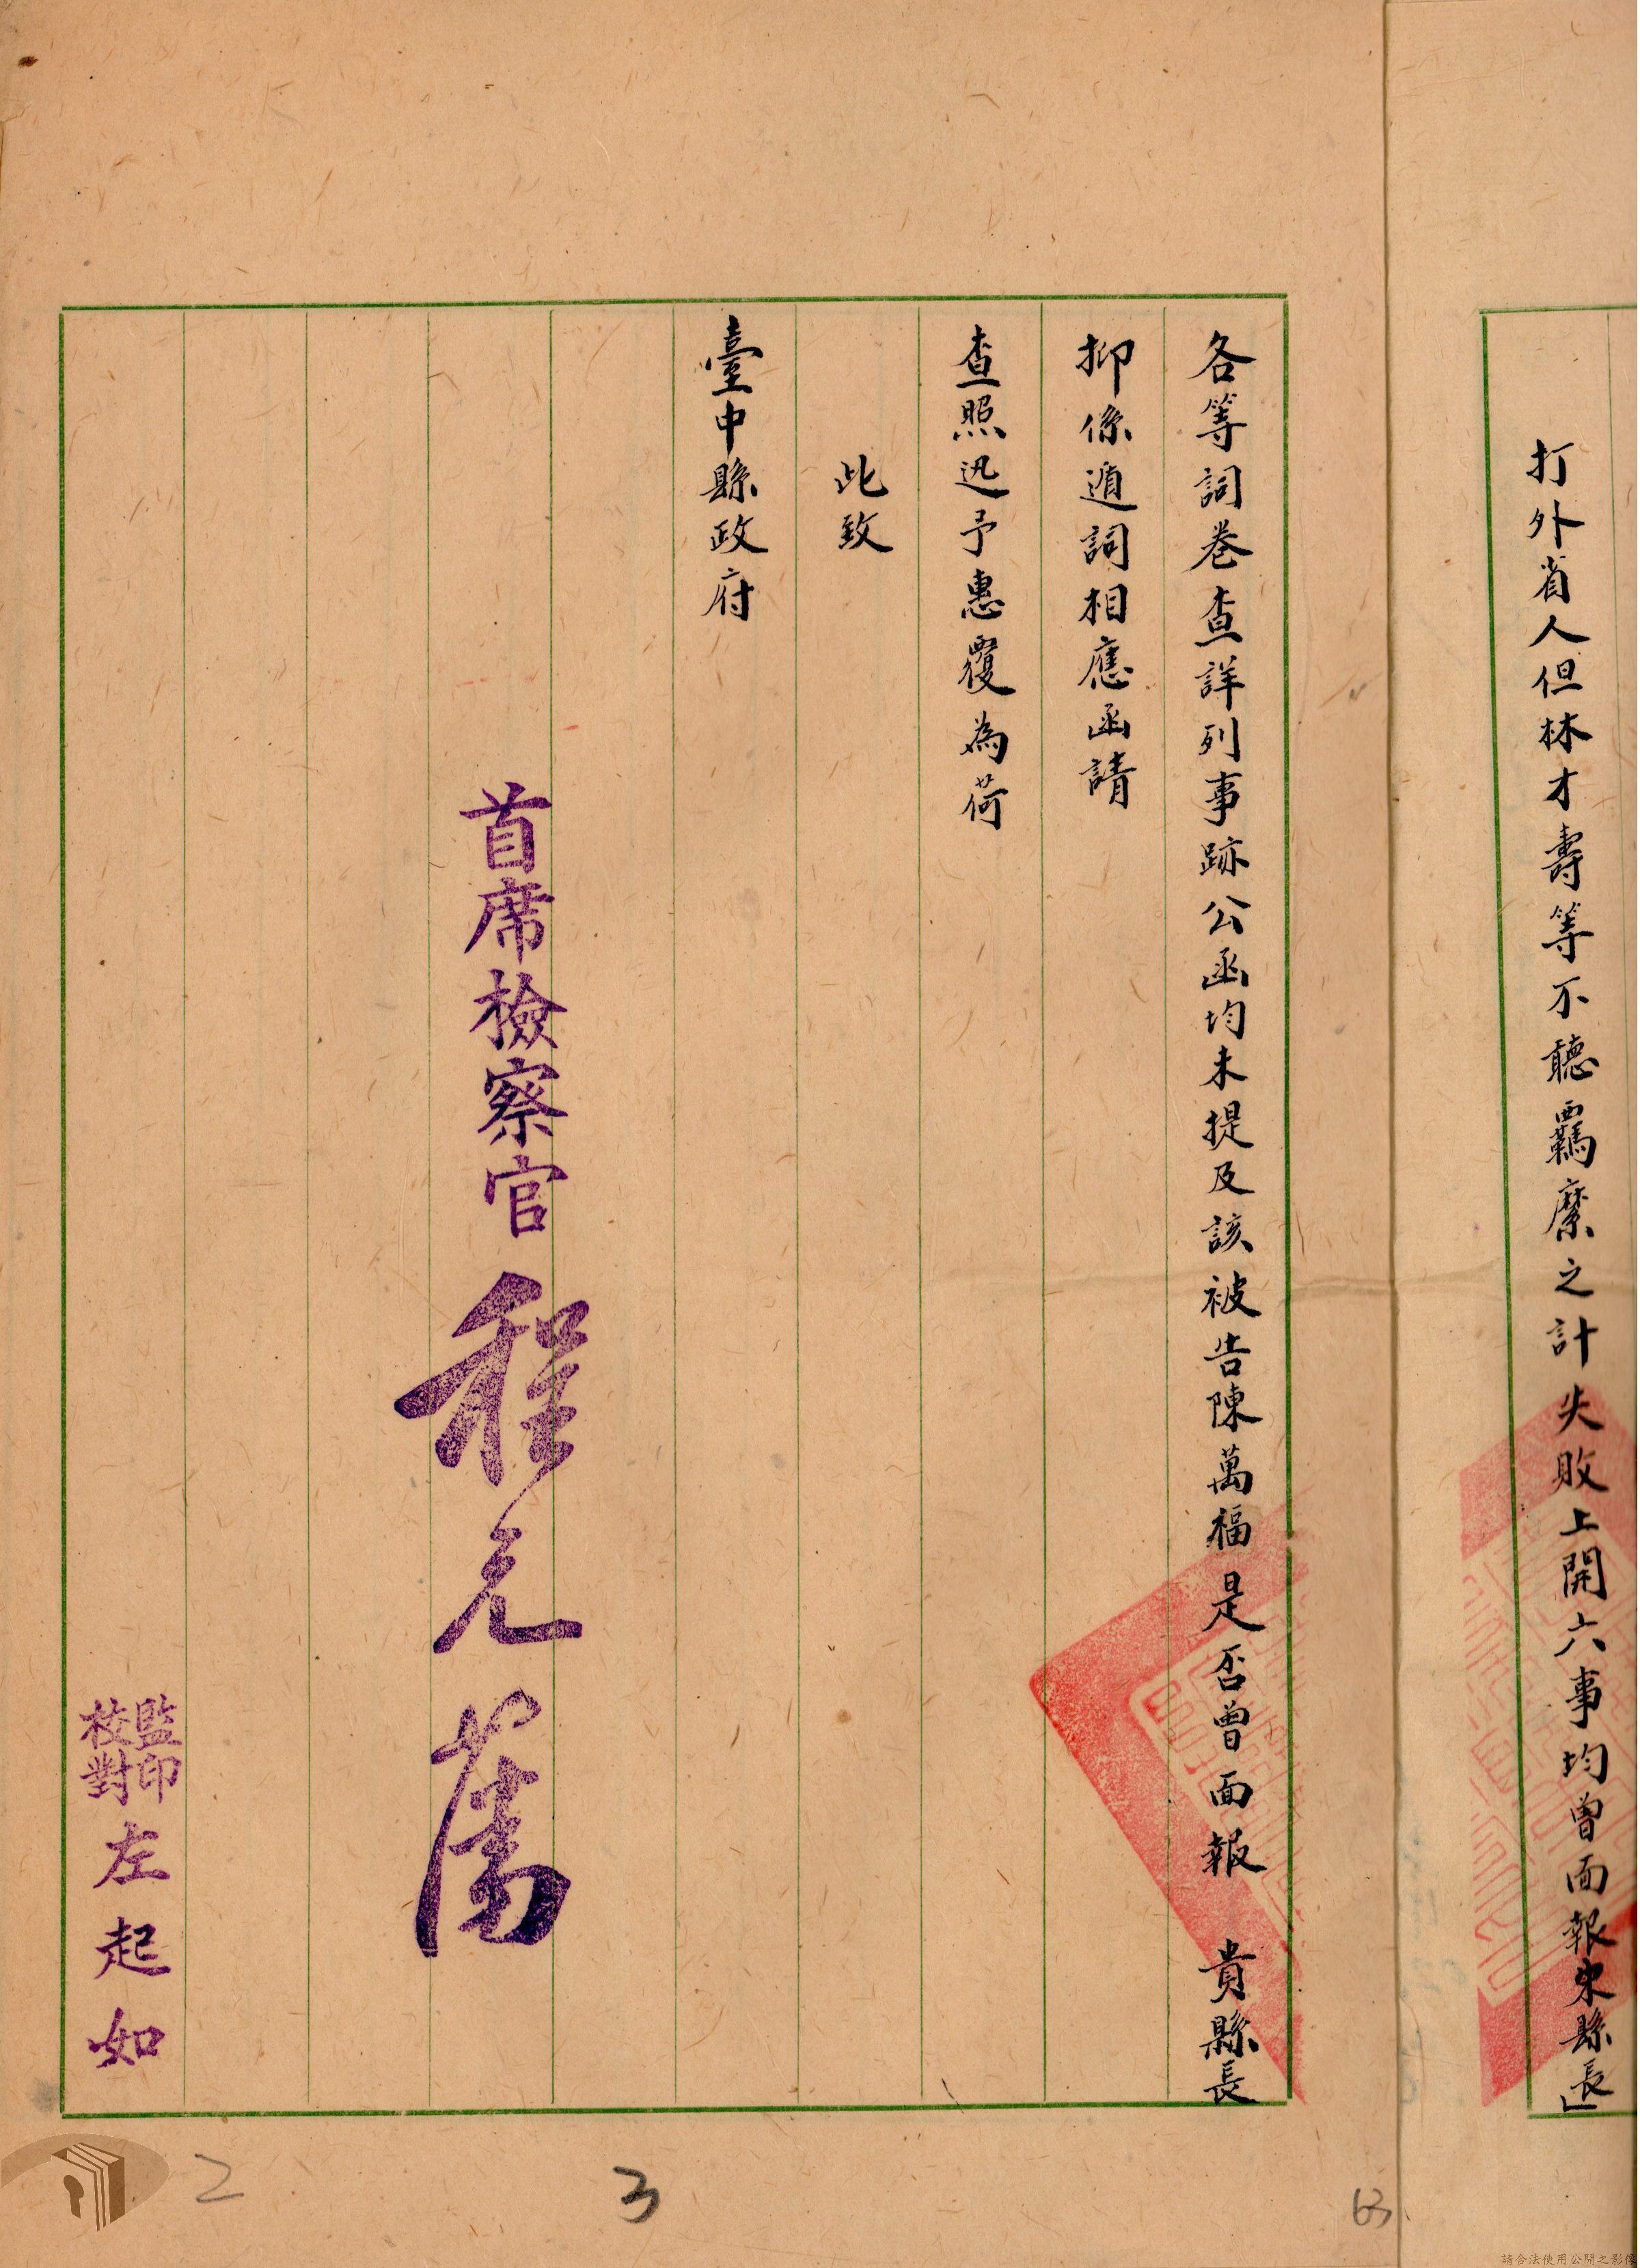 打外省人但林才壽等不聽羈縻之計失敗上開六事均曾面報宋縣長」
各等詞卷查詳列事跡公函均未提及該被告陳萬福是否曾面報　貴縣長
抑係遁詞相應函請
查照迅予惠覆為荷
此致
臺中縣政府
首席檢察官 程元藩
監印
校對
左起如
2
3
63
請合法使用公開之影像